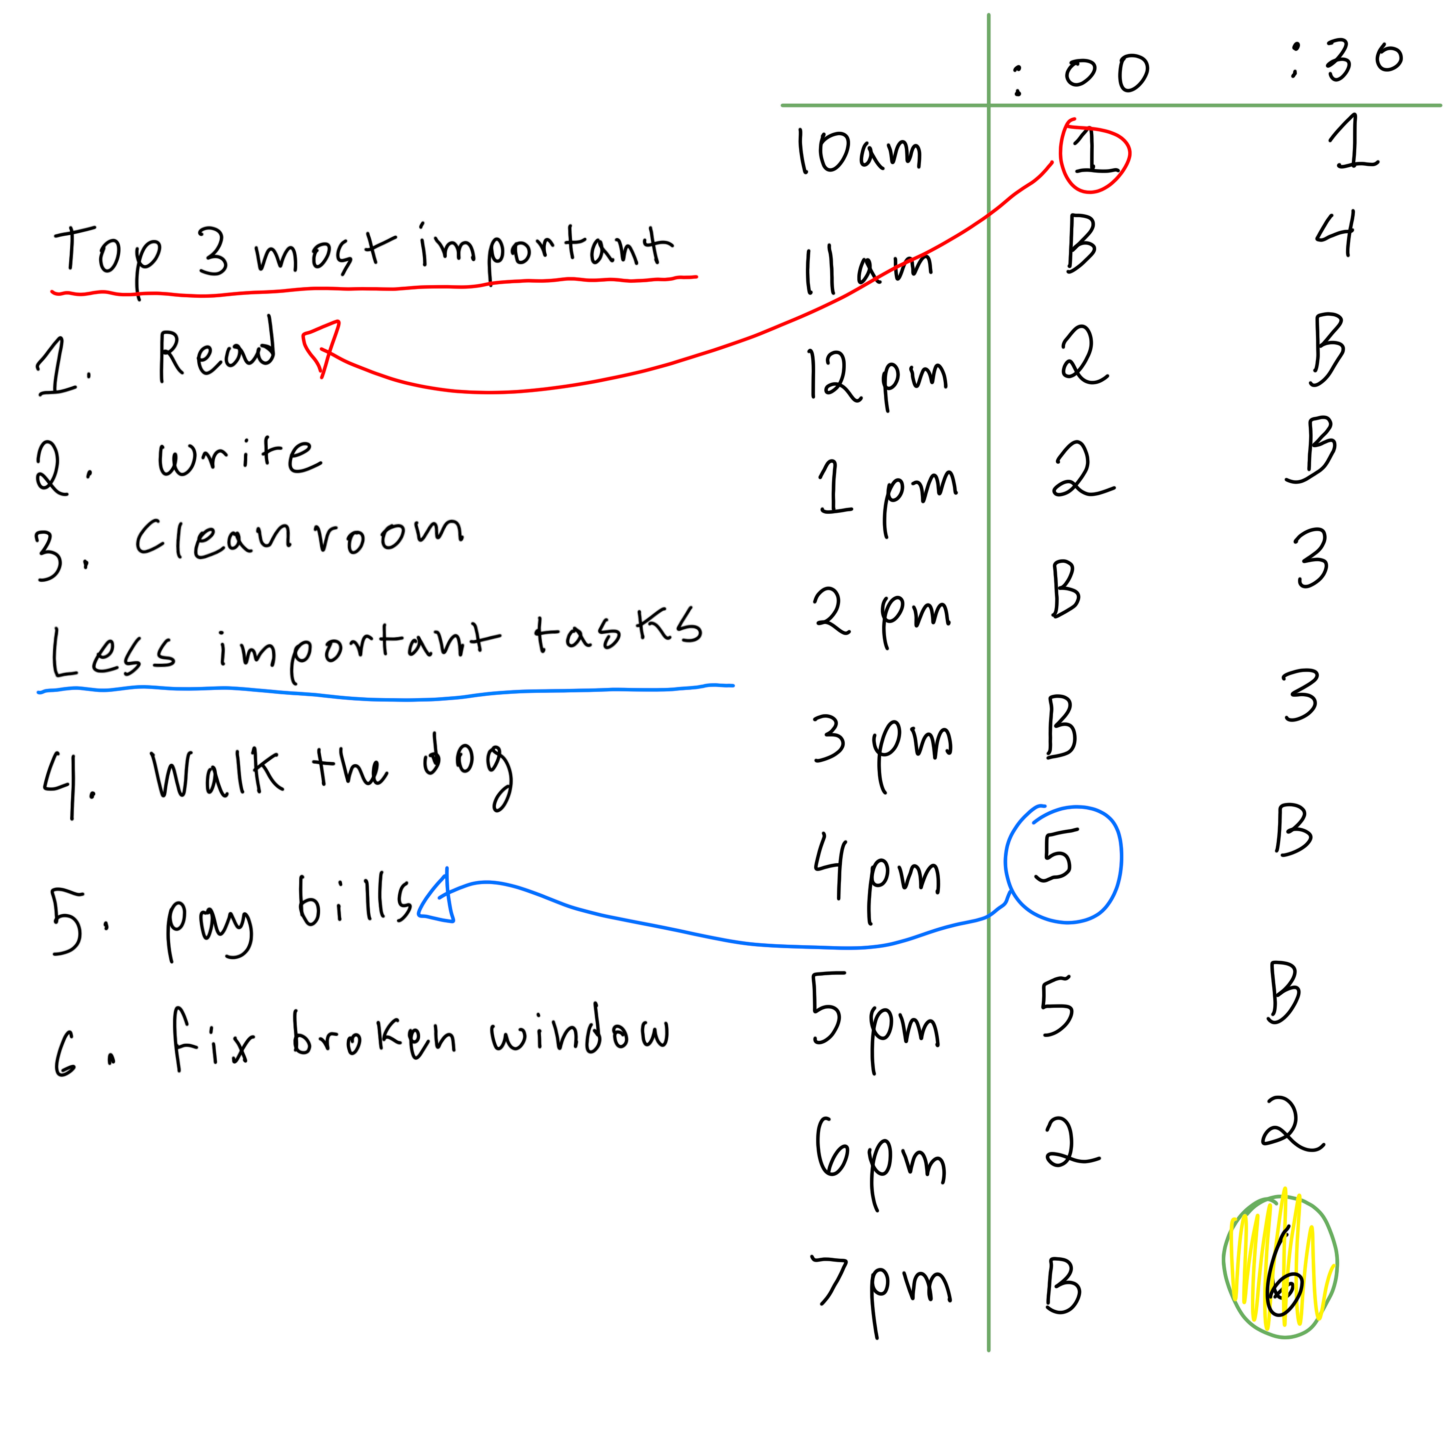 Top 3 most important
1. Read
2. write
3. Clean room
Less important tasks
4. Walk the dog
5. pay bills
6. fix broken window
:00 :30
10am 1 1
11am B 4
12 pm 2 B
1 pm 2 B
2 pm B 3
3 pm B 3
4 pm 5 B
5 pm 5 B
6 pm 2 2
7 pm B 6